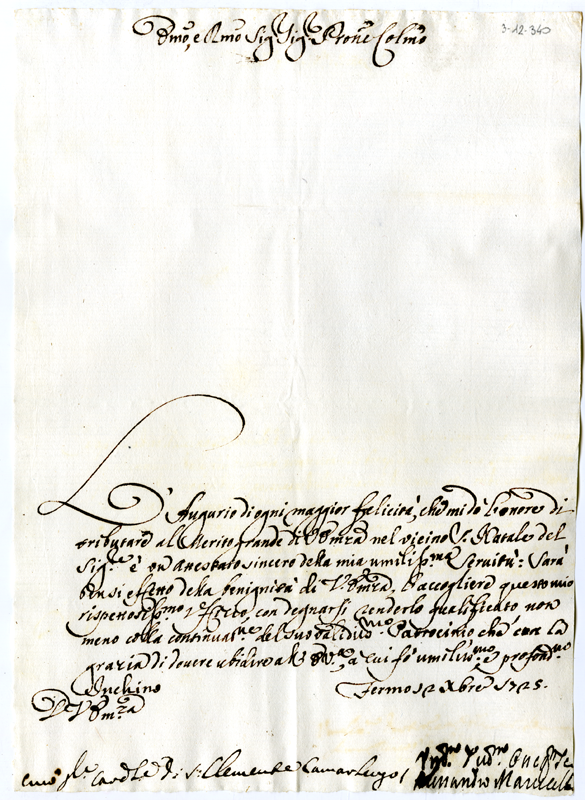 3-12-340
Emo, e Rmo Sig.r Sig.r Prone Colmo
L'Augurio di ogni maggior felicità, che mi dò l'honore di
tributare al Merito grande di V. Emza nel vicino S. Natale del
Sig.re è un attestato sincero della mia umiliss.ma Servitù: Sarà
bensi effetto della benignità di V. Emza, l'accogliere questo mio
rispettosiss.mo con degnarsi renderlo qualificato non
meno colla continuat.ne del suo validiss.mo Patrocinio che con la
grazia di dovere ubidire a a cui fò umiliss.mo e profond.mo
Inchino
Fermo 12 Xbre 1725.
Di V. Emza
Emo Sr. Cardle di S. Clemente Camarlengo
Marcelli